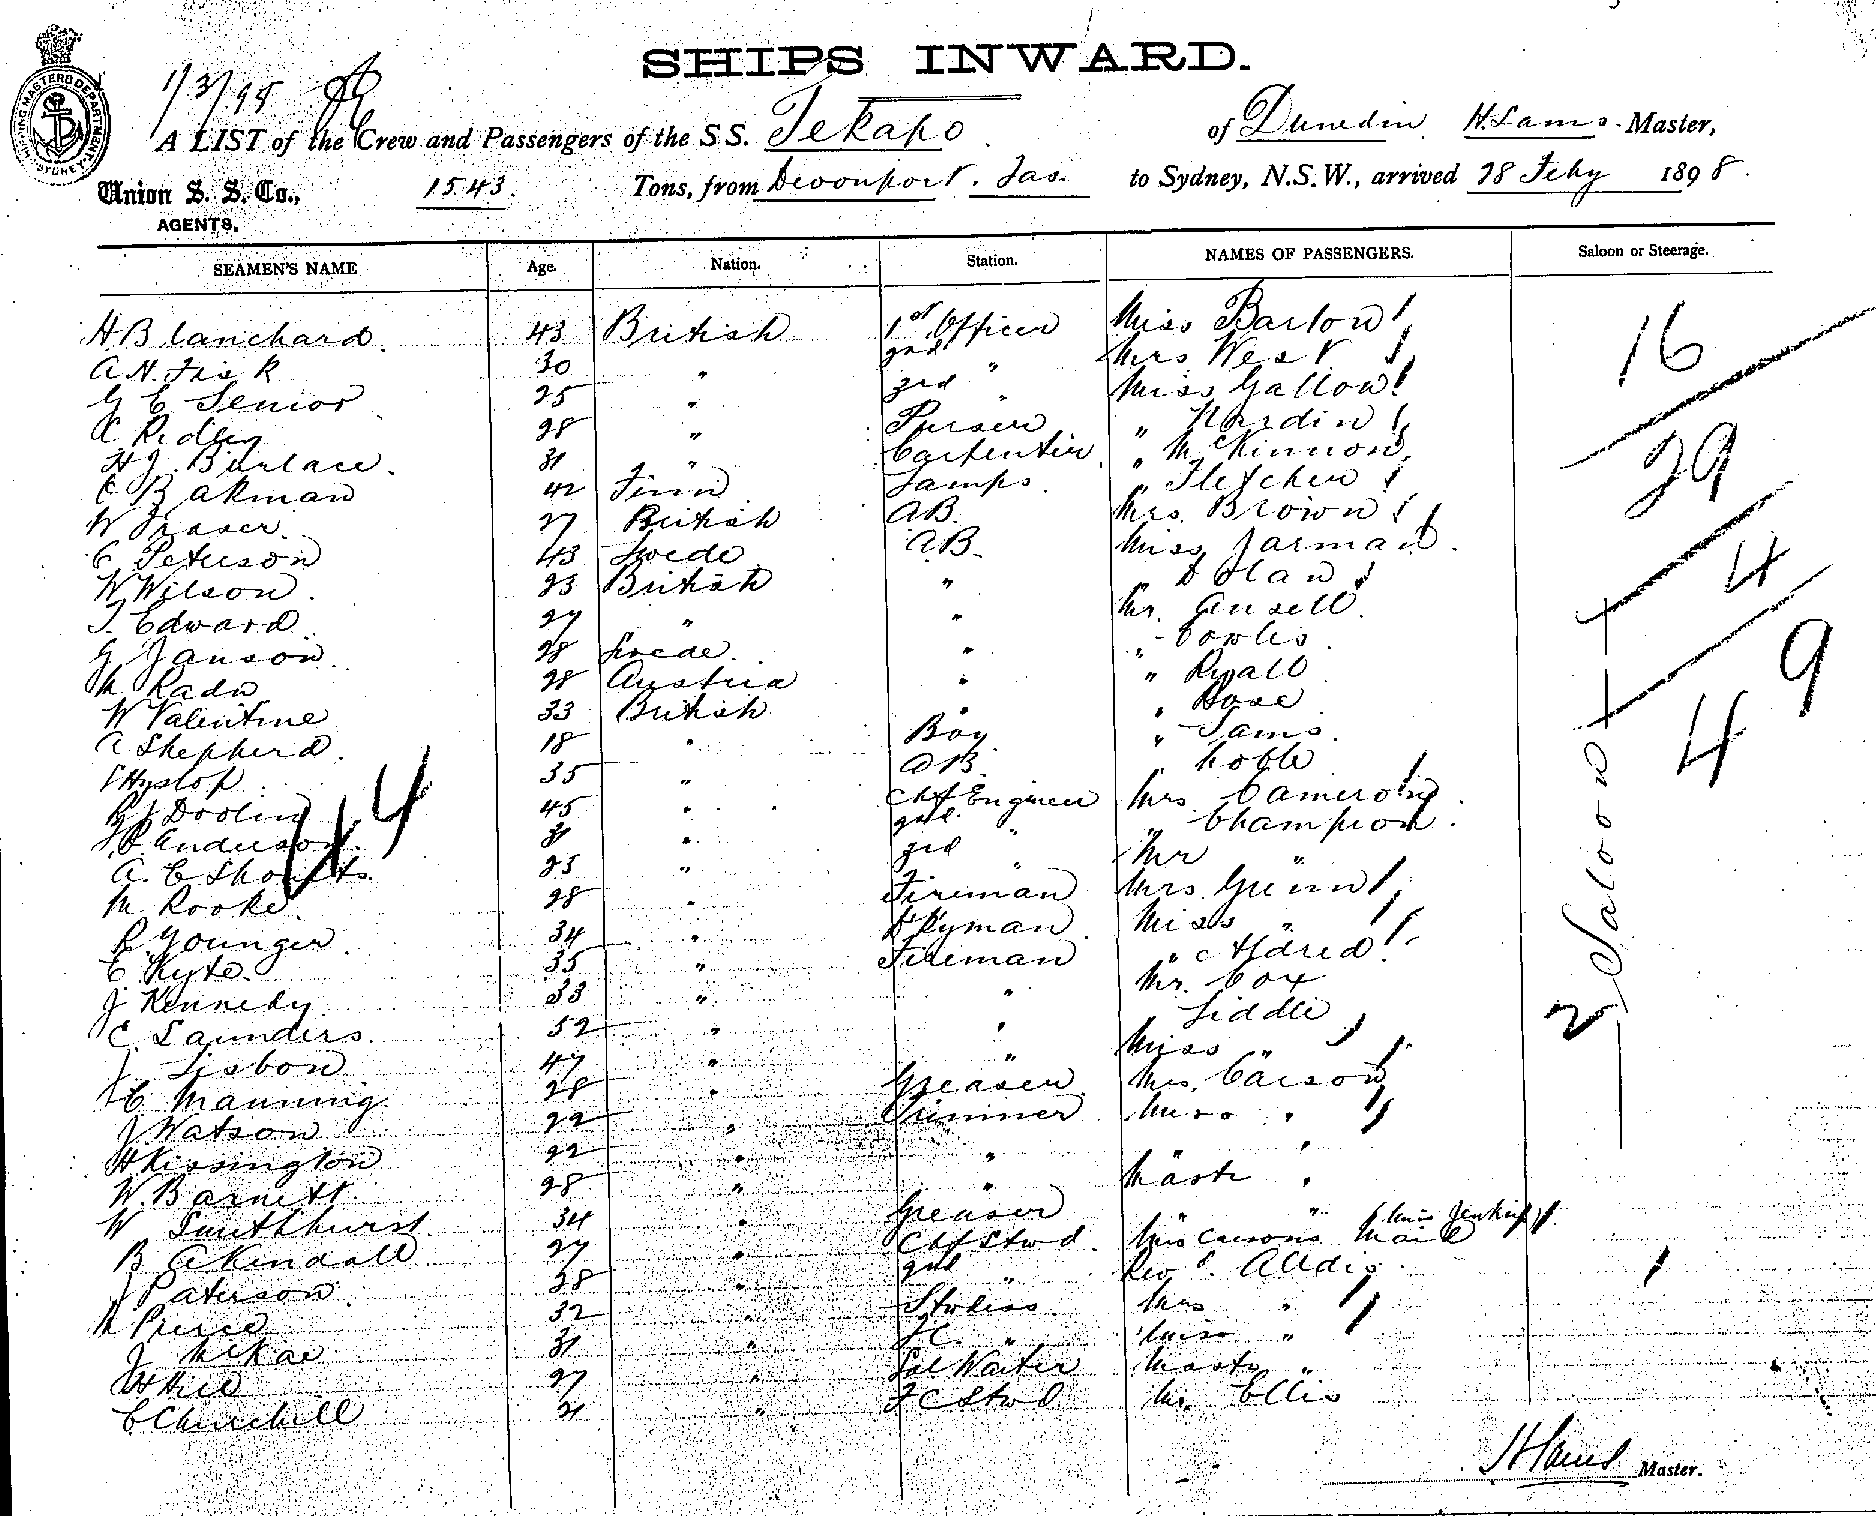 SHIPS INWARD.
1/3/98
A LIST of the Crew and Passengers of the S.S. Tekapo of Dunedin H. Sams. Master,
Union S. S. Co., AGENTS. 1543. Tons, from Devonport. Tas. to Sydney, N.S.W., arrived 28 Feby 1898.
SEAMEN'S NAME Age. Nation. Station. NAMES OF PASSENGERS. Saloon or Steerage.
H Blanchard. 43 British 1st Officer Miss Barton
A H. Fisk 30 " 2nd " Mrs West
G E Senior 25 " 3rd " Miss Gallow
Ridley 28 " Purser " Hardin
H J. Burlace. 31 " Carpenter " McKinnon
C Bakman 42 Finn Lamps. " Fletcher
W Fraser. 27 British AB. Mrs. Brown
C Peterson 43 Swede AB. Miss Jarman.
W Wilson. 23 British " " Dolan
T. Edward 27 " " Mr. Ansell.
G Janson 28 Swede. " " Cowles
M Radu 28 Austria " " Ryall
W Valentine 33 British " " Rose
A Shepherd. 18 " Boy " Sams.
Hyslop 35 " AB. " Noble
R J Doolin 45 " Chf Engineer Mrs. Cameron
Anderson 31 " 2nd. " " Champion.
A. E Shoults. 23 " 3rd " Mr "
M Rooke. 28 " Fireman Mrs. Grinn
R Younger. 34 " Dkyman Miss "
C Kyte. 35 " Fireman " Aldred
J Kennedy 33 " " Mr. Cox
C. Saunders. 52 " " Liddle
J Lisbon 47 " " Miss "
C Manning 28 " Greaser Mrs. Carson
J Watson 22 " Trimmer Miss "
H Kissington 22 " " "
W. Barnett 28 " " Mastr "
W Smithhurst 34 " Greaser "
B A Kendall 27 " Chf Stwd. Mrs Carsons Maid Miss Jenkins
J Paterson 38 " 2nd " Revd. Alldis
M Pierce 32 " Stwdess Mrs "
J McKae 31 " " Miss "
H Hill 27 " Sal Waiter Mastr "
C Churchill 21 " F C Stwd Mr. Ellis
16
29
4
9
4
14
Saloon
H Sams Master.